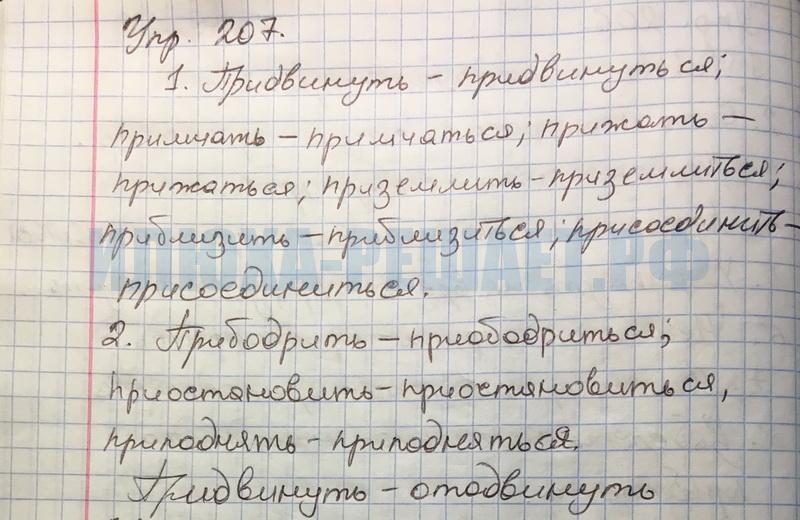 Упр. 207.
1. Придвинуть – придвинуться;
примчать – примчаться; прижать –
прижаться; приземлить – приземлиться;
приблизить – приблизиться; присоединить –
присоединиться.
2. Прибодрить – приободриться;
приостановить – приостановиться,
приподнять – приподняться.
Придвинуть – отодвинуть
ШКОЛА-РЕШАЕТ.РФ